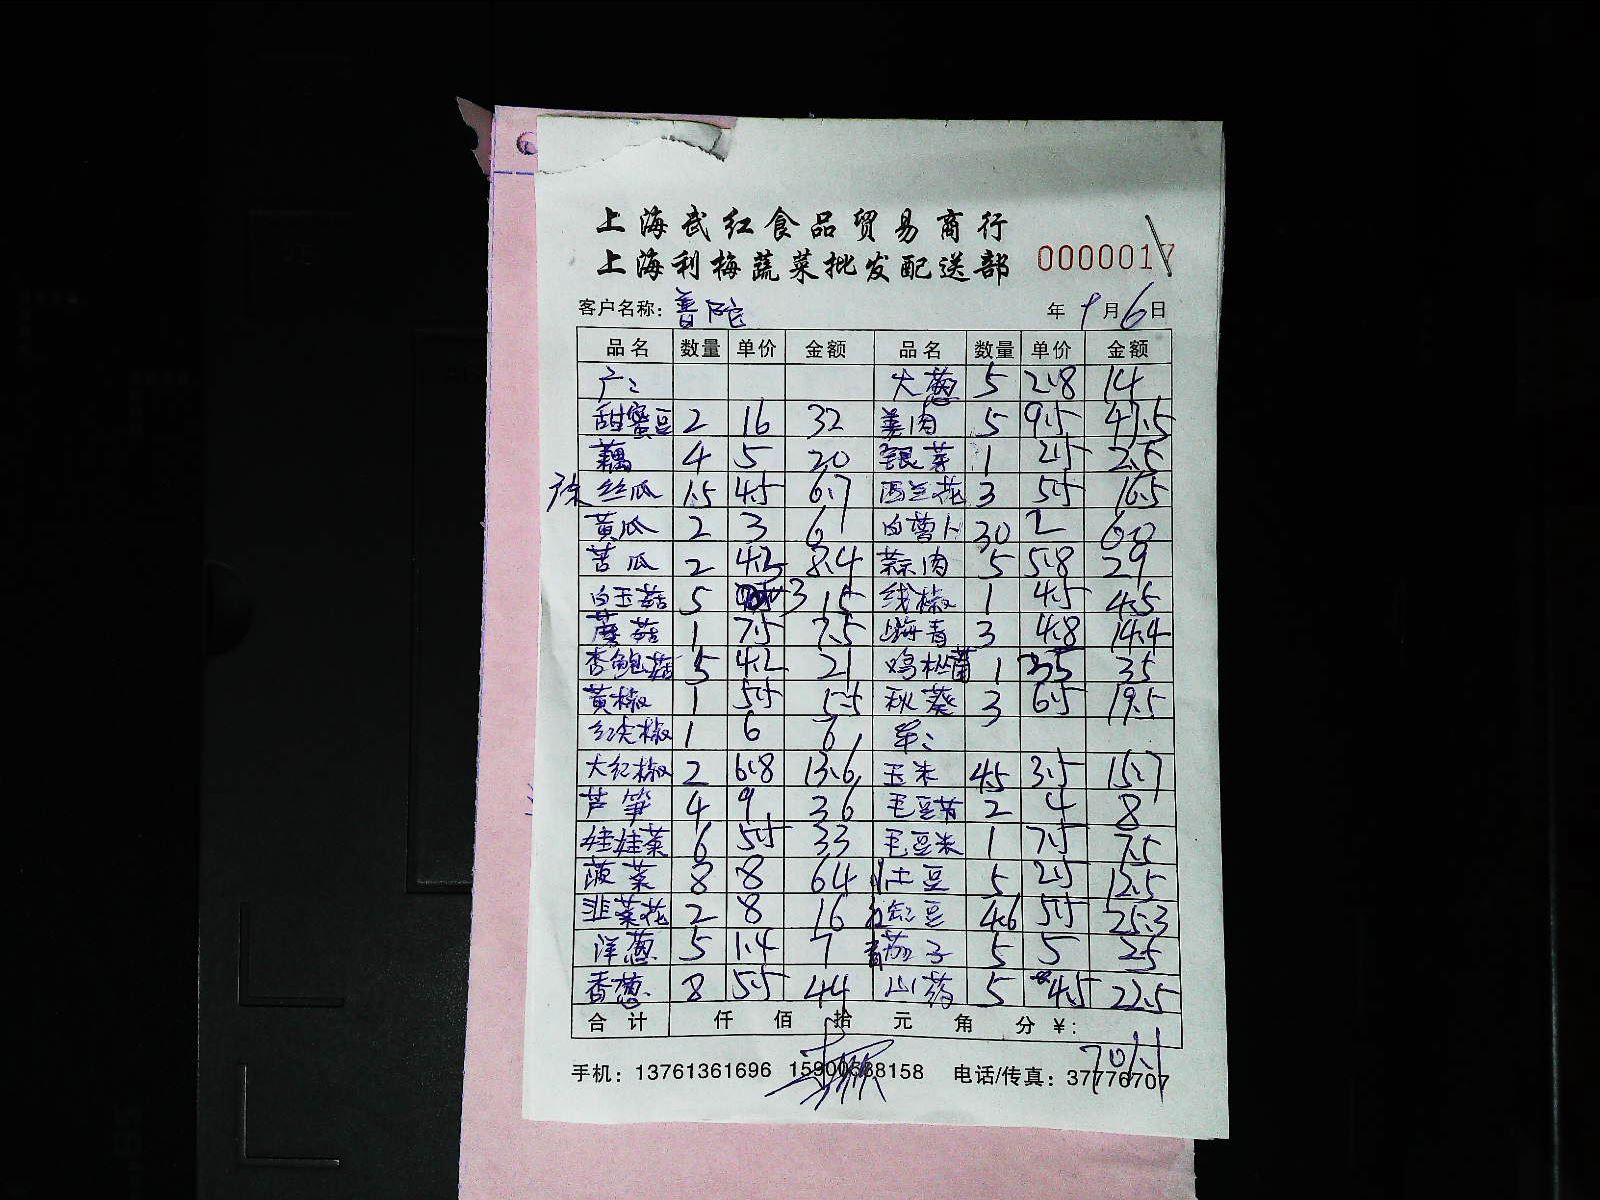 上海武红食品贸易商行
上海利梅蔬菜批发配送部 0000017
客户名称：普陀 年 9月6日
品名 数量 单价 金额 品名 数量 单价 金额
大葱 5 2.8 14
甜蜜豆 2 16 32 姜肉 5 9.5 47.5
藕 4 5 20 银芽 1 2.5 2.5
丝瓜 1.5 4.5 6.7 西兰花 3 5.5 16.5
黄瓜 2 3 6 白萝卜 30 2 60
苦瓜 2 4.2 8.4 蒜肉 5 5.8 29
白玉菇 5 3 15 线椒 1 4.5 4.5
蘑菇 1 7.5 7.5 上海青 3 4.8 14.4
杏鲍菇 5 4.2 21 鸡枞菌 1 35 35
黄椒 1 5.5 5.5 秋葵 3 6.5 19.5
红尖椒 1 6 6
大红椒 2 6.8 13.6 玉米 4.5 3.5 15.7
芦笋 4 9 36 毛豆节 2 4 8
娃娃菜 6 5.5 33 毛豆米 1 7.5 7.5
菠菜 8 8 64 土豆 5 2.5 12.5
韭菜花 2 8 16 豇豆 4.6 5.5 25.3
洋葱 5 1.4 7 茄子 5 5 25
香葱 8 5.5 44 山药 5 4.5 22.5
合计 仟 佰 拾 元 角 分 ￥：
手机：13761361696 15900688158 电话/传真：37776707